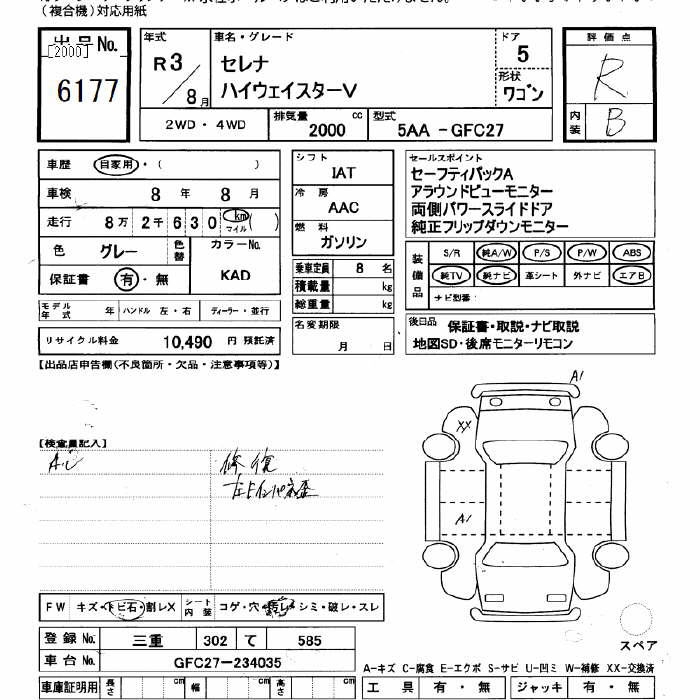 (複合機)対応用紙
出品No.
[2000]
6177
年式
R3/8月
車名・グレード
セレナ
ハイウェイスターV
ドア
5
形状
ワゴン
評価点
R
内装
B
2WD・4WD
排気量
2000 cc
型式
5AA -GFC27
車歴 自家用・( )
車検 8年 8月
走行 8万2千630 km マイル ( )
色 グレー
色替
カラーNo.
KAD
保証書 有・無
モデル年式 年 ハンドル 左・右 ディーラー・並行
リサイクル料金 10,490 円 預託済
シフト
IAT
冷房
AAC
燃料
ガソリン
乗車定員 8 名
積載量 kg
総重量 kg
名変期限
月 日
セールスポイント
セーフティパックA
アラウンドビューモニター
両側パワースライドドア
純正フリップダウンモニター
装備品
S/R 純A/W P/S P/W ABS
純TV 純ナビ 革シート 外ナビ エアB
ナビ型番:
後日品 保証書・取説・ナビ取説
地図SD・後席モニターリモコン
【出品店申告欄(不良箇所・欠品・注意事項等)】
【検査員記入】
修復
A1
XX
A1
FW キズ・トビ石・割レX シート内装 コゲ・穴・汚レ・シミ・破レ・スレ
登録No. 三重 302 て 585
車台No. GFC27-234035
車庫証明用 長さ cm 幅 cm 高さ cm
スペア
A-キズ C-腐食 E-エクボ S-サビ U-凹ミ W-補修 XX-交換済
工具 有・無 ジャッキ 有・無